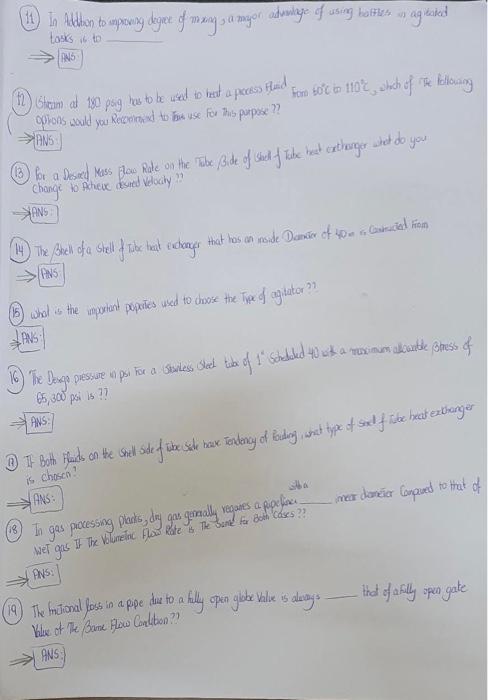 11 In Addition to improving degree of mixing, a major advantage of using baffles in agitated
tasks is to ________
⇒ ANS:
12 Steam at 180 psig has to be used to heat a process Fluid From 60°C to 110°C, which of The Following
options would you Recommend to use For This purpose??
⇒ ANS:
13 For a Desired Mass Flow Rate on the Tube Side of Shell & Tube heat exchanger what do you
Change to Achieve desired Velocity??
⇒ ANS:
14 The Shell of a Shell & Tube heat exchanger that has an inside Diameter of 40 in is Constructed From
⇒ ANS:
15 what is the important properties used to choose the Type of agitator??
⇒ ANS:
16 The Design pressure in psi For a Stainless Steel tube of 1" Scheduled 40 with a maximum allowable Stress of
65,300 psi is ??
⇒ ANS:
17 If Both Fluids on the Shell Side & Tube Side have Tendency of Fouling, what type of Shell & Tube heat exchanger
is chosen?
⇒ ANS:
18 In gas processing plants, dry gas generally requires a pipelines with a ____ inner diameter Compared to that of
wet gas If The Volumetric Flow Rate is The Same For Both Cases??
⇒ ANS:
19 The Frictional loss in a pipe due to a fully open globe Valve is always ____ that of a fully open gate
Valve at The Same Flow Condition??
⇒ ANS: